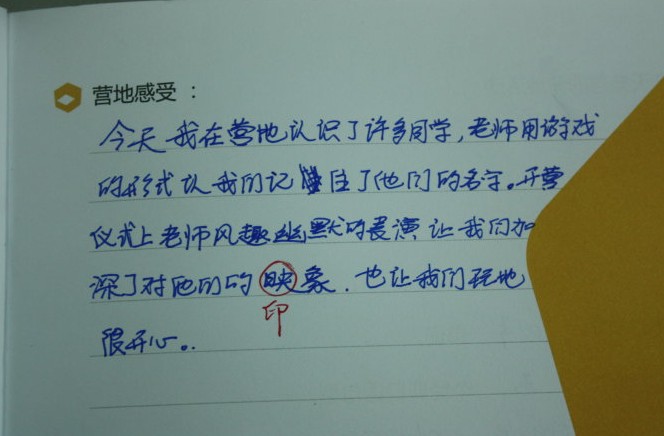 营地感受：
今天我在营地认识了许多同学，老师用游戏
的形式认我们记住了他们的名字。开营
仪式上老师风趣幽默的表演让我们加
深了对他们的映象，也让我们玩地
印
很开心。